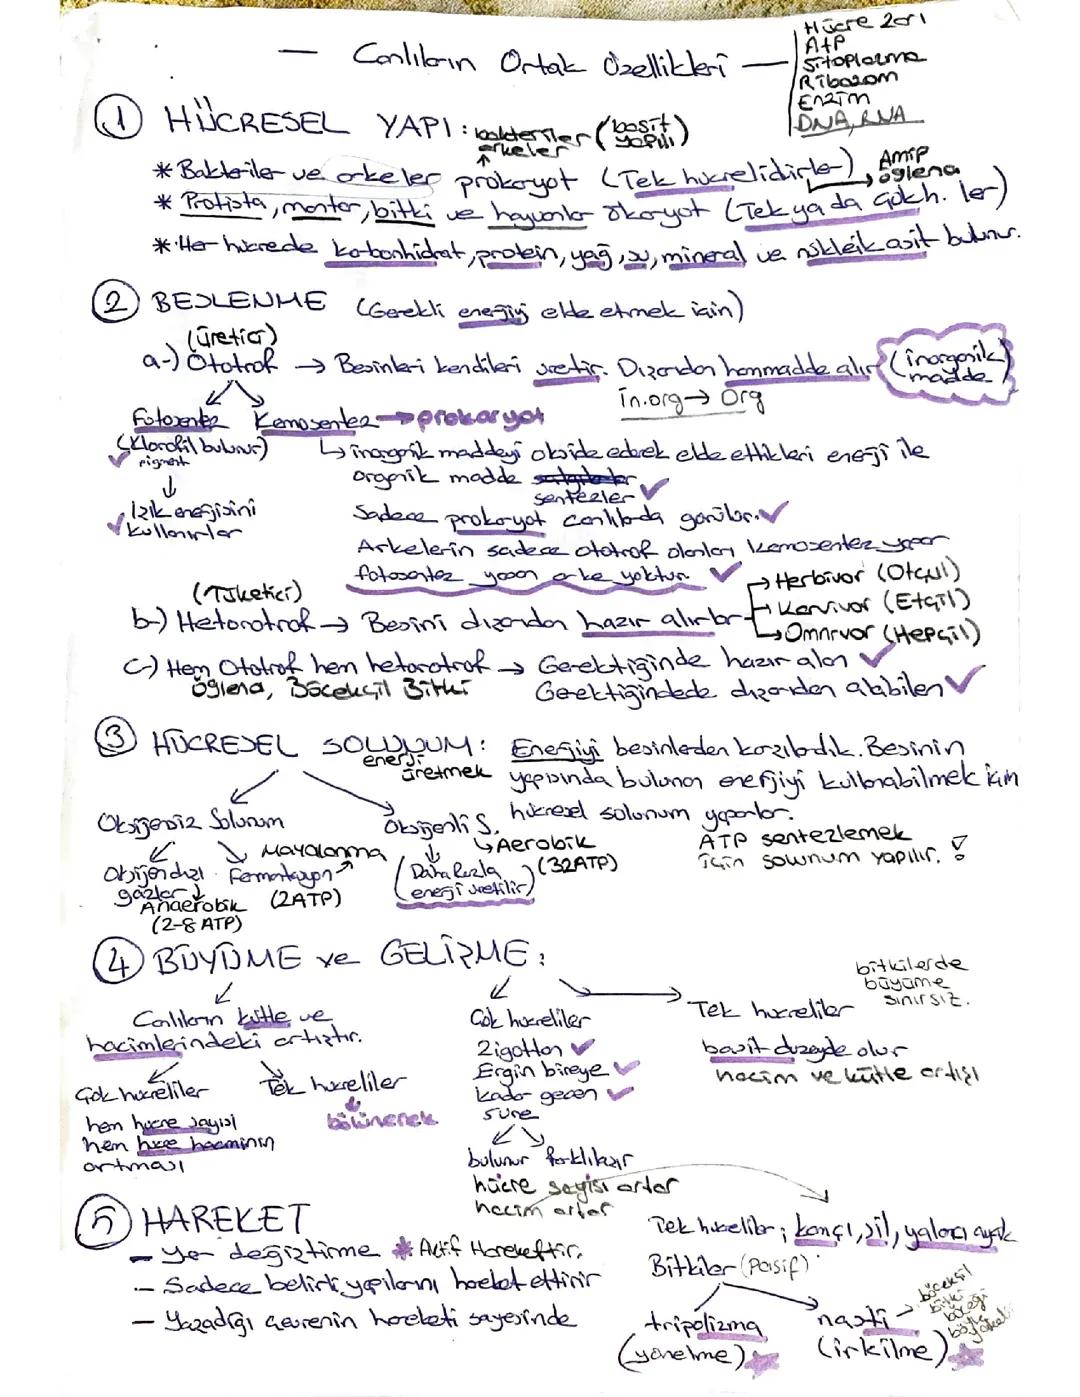 — Canlıların Ortak Özellikleri —
Hücre zarı
ATP
Sitoplazma
Ribozom
Enzim
DNA, RNA
① HÜCRESEL YAPI: bakteriler (basit yapılı)
arkeler
* Bakteriler ve arkeler prokaryot (Tek hücrelidirler)
Amip
öglena
* Protista, mantar, bitki ve hayvanlar ökaryot (Tek ya da çokh. ler)
* Her hücrede karbonhidrat, protein, yağ, su, mineral ve nükleik asit bulunur.
② BESLENME (Gerekli enerjiyi elde etmek için)
(üretici)
a-) Ototrof → Besinleri kendileri üretir. Dışarıdan hammadde alır (inorganik madde)
in.org → Org
Fotosentez Kemosentez → prokaryot
(Klorofil bulunur)
pigment
↳ inorganik maddeyi okside ederek elde ettikleri enerji ile
organik madde
sentezler
Işık enerjisini
kullanırlar
Sadece prokaryot canlılarda görülür.
Arkelerin sadece ototrof olanları kemosentez yapar
fotosentez yapan arke yoktur.
(Tüketici)
b-) Hetorotrof → Besini dışarıdan hazır alırlar
→ Herbivor (Otçul)
→ Karnivor (Etçil)
→ Omnivor (Hepçil)
c-) Hem Ototrof hem hetorotrof → Gerektiğinde hazır alan
öglena, Böcekçil Bitki
Gerektiğindede dışarıdan alabilen
③ HÜCRESEL SOLUNUM: Enerjiyi besinlerden karşıladık. Besinin
enerji
üretmek
yapısında bulunan enerjiyi kullanabilmek için
hücresel solunum yaparlar.
Oksijensiz Solunum
Oksijenli S.
↳ Aerobik
(32ATP)
ATP sentezlemek
için solunum yapılır. !
Mayalanma
Oksijen dışı
gazlar
Fermantasyon
(2ATP)
(Daha fazla
enerji üretilir)
Anaerobik
(2-8 ATP)
④ BÜYÜME ve GELİŞME:
bitkilerde
büyüme
sınırsız.
Canlıların kütle ve
hacimlerindeki artıştır.
Çok hücreliler
Zigottan
Ergin bireye
kadar geçen
süre
Tek hücreliler
basit düzeyde olur
hacim ve kütle artışı
Çok hücreliler
hem hücre sayısı
hem hücre hacminin
artması
Tek hücreliler
bölünerek
bulunur farklılaşır
hücre sayısı artar
hacim artar
⑤ HAREKET
— Yer değiştirme * Aktif Harekettir.
— Sadece belirli yapılarını hareket ettirir
— Yaşadığı çevrenin hareketi sayesinde
Tek hücreliler; kamçı, sil, yalancı ayak
Bitkiler (Pasif)
tripolizma
(yönelme)
nasti
(irkilme)
böcekçil
bitki
böceği
böyle